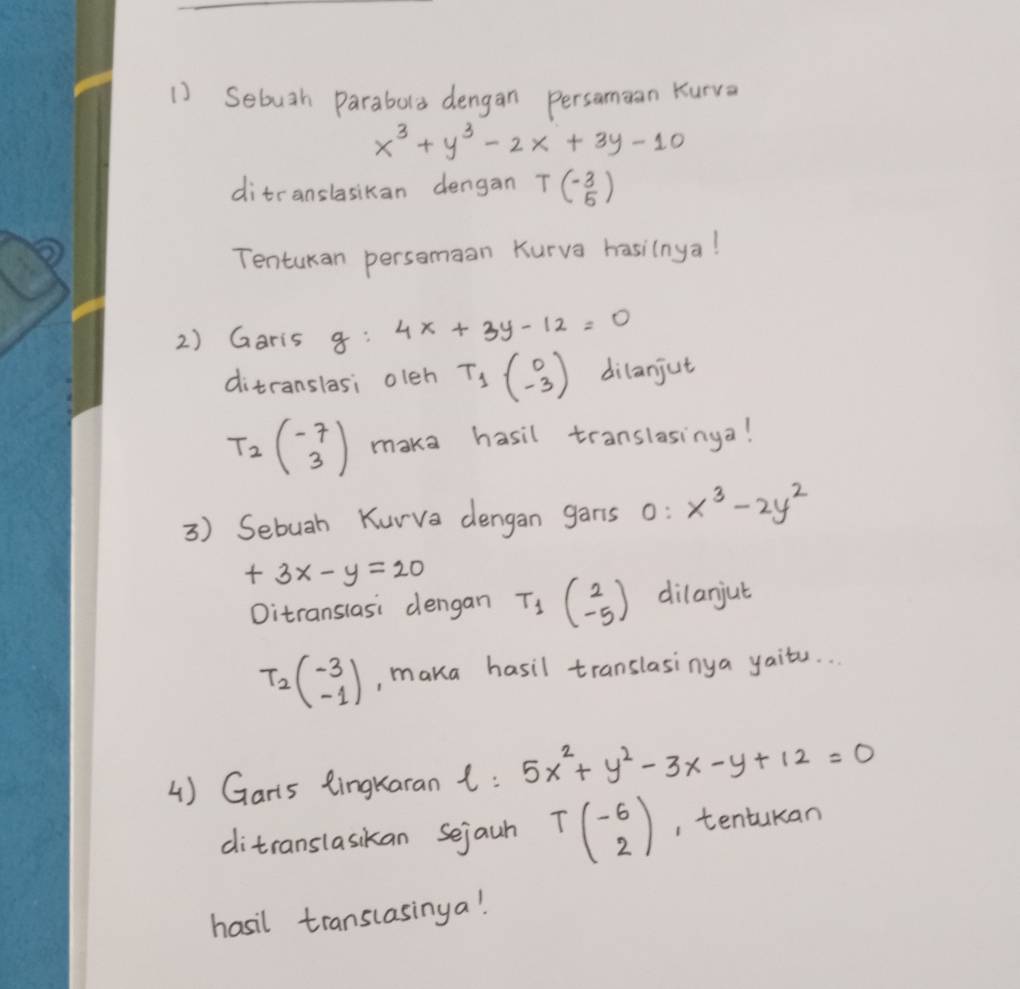 1) Sebuah parabola dengan persamaan kurva
x³ + y³ - 2x + 3y - 10
ditranslasikan dengan T (-3 5)
Tentukan persamaan kurva hasilnya!
2) Garis g : 4x + 3y - 12 = 0
ditranslasi oleh T₁ (0 -3) dilanjut
T₂ (-7 3) maka hasil translasinya!
3) Sebuah kurva dengan garis O : x³ - 2y²
+ 3x - y = 20
Ditranslasi dengan T₁ (2 -5) dilanjut
T₂ (-3 -1), maka hasil translasinya yaitu...
4) Garis lingkaran l : 5x² + y² - 3x - y + 12 = 0
ditranslasikan sejauh T (-6 2), tentukan
hasil translasinya!